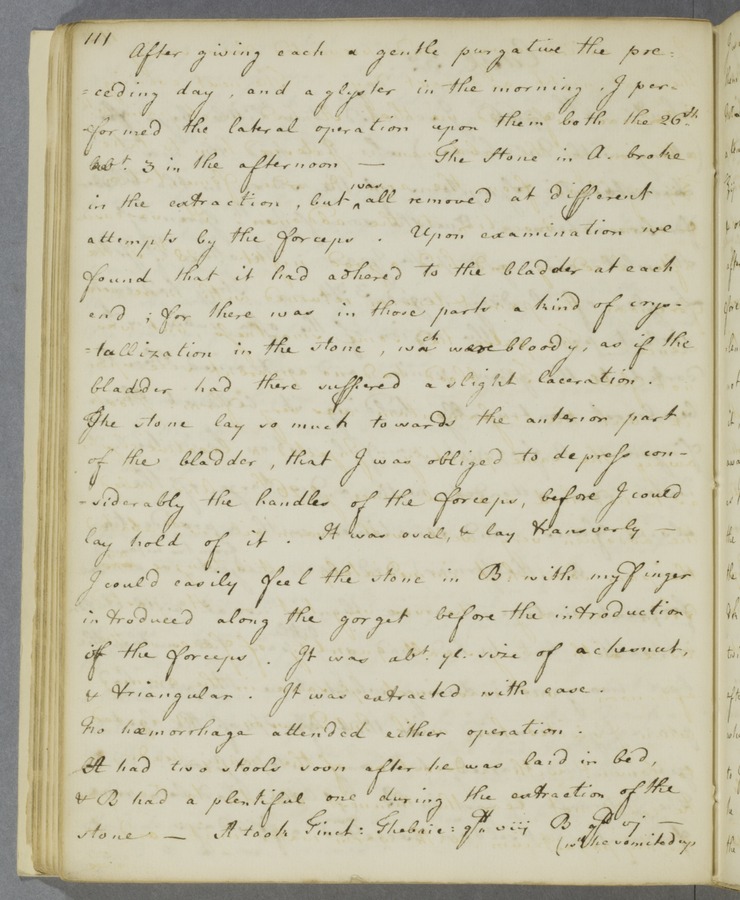 111
After giving each a gentle purgative the pre-
-ceding day, and a glyster in the morning, I per-
-formed the lateral operation upon them both the 26th.
abt. 3 in the afternoon — The Stone in A. broke
in the extraction, but was all removed at different
attempts by the forceps. Upon examination we
found that it had adhered to the bladder at each
end; for there was in those parts a kind of crys-
-tallization in the stone, wch were bloody, as if the
bladder had there suffered a slight laceration.
The stone lay so much towards the anterior part
of the bladder, that I was obliged to depress con-
-siderably the handles of the forceps, before I could
lay hold of it. It was oval, & lay transverly —
I could easily feel the stone in B. with my finger
introduced along the gorget before the introduction
of the forceps. It was abt. ye. size of a chesnut,
& triangular. It was extracted with ease.
No hæmorrhage attended either operation.
A had two stools soon after he was laid in bed,
& B had a plentiful one during the extraction of the
stone — A took Tinct: Thebaic: gtt viij B gtt vj —
(wch he vomited up